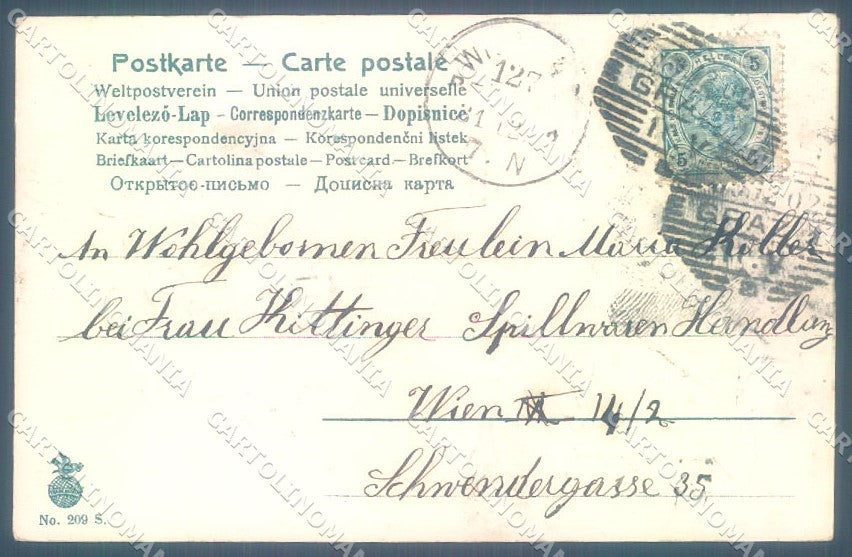 Postkarte — Carte postale
Weltpostverein — Union postale universelle
Levelező-Lap - Correspondenzkarte - Dopisnice
Karta korespondencyjna — Korespondenčni listek
Briefkaart — Cartolina postale — Postcard — Brefkort
Открытое-письмо — Дописна карта
WIEN
127
N
GRAZ
5
5
An Wohlgebornen Freulein Maria Kobler
bei Frau Kittinger Spillwaren Handlung
Wien 14/2
Schwendergasse 35
No. 209 S.
CARTOLINOMANIA